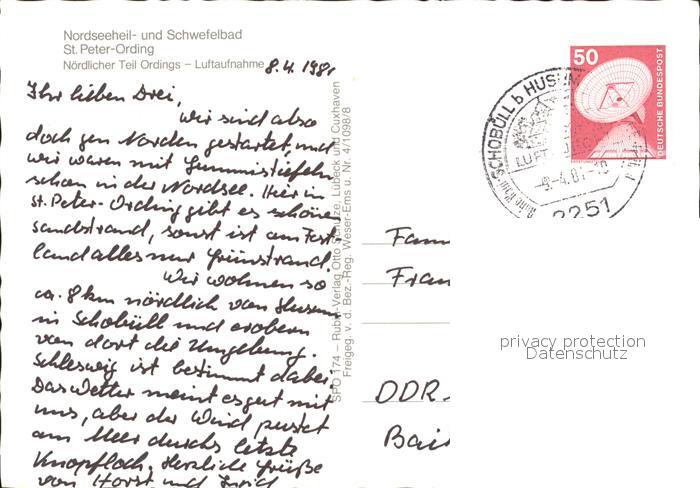 Nordseeheil- und Schwefelbad
St. Peter-Ording
Nördlicher Teil Ordings – Luftaufnahme
8.4.1981
Ihr lieben Drei,
wir sind also
doch gen Norden gestartet, und
wir waren mit Gummistiefeln
schon in der Nordsee. Hier in
St. Peter-Ording gibt es schöne
Sandstrand, sonst ist am Fest
land alles nur Grünstrand.
Wir wohnen so
ca. 8 km nördlich von Husum
in Schobüll und erobern
von dort die Umgebung.
Schleswig ist bestimmt dabei.
Das Wetter meint es gut mit
uns, aber der Wind pustet
am Meer durchs letzte
Knopfloch. Herzliche Grüße
von Horst und
SPO 174 – Rubin-Verlag Otto Schulze, Lübeck und Cuxhaven
Freigeg. v. d. Bez.-Reg. Weser-Ems u. Nr. 4/1098/8
50
DEUTSCHE BUNDESPOST
SCHOBÜLL b HUSUM
LUFT
-9.-4.81-10
2251
Fam
Fran
DDR-
Bai
privacy protection
Datenschutz